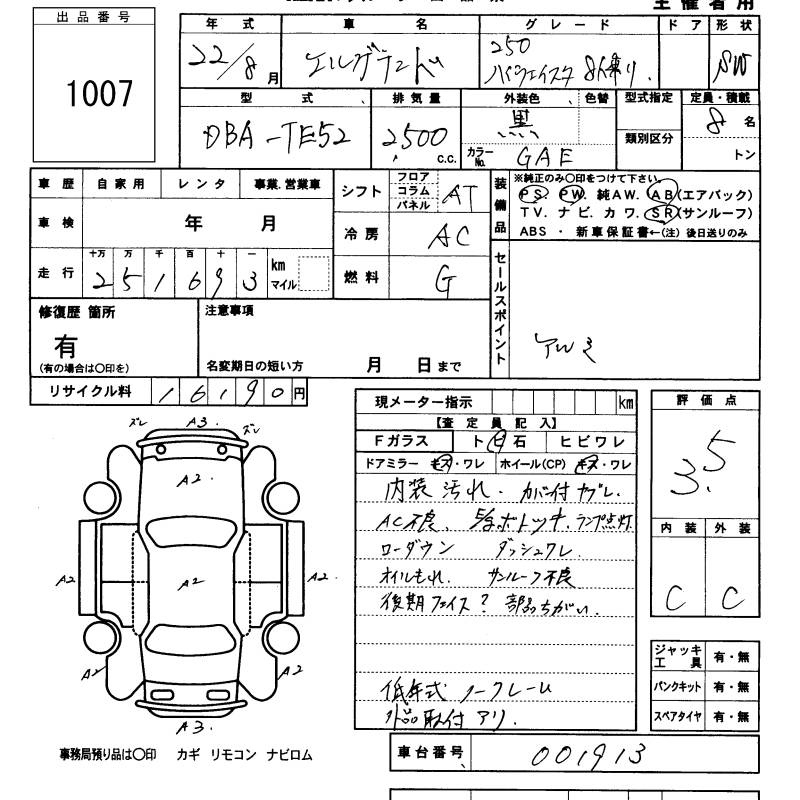 主催者用
出品番号
1007
年式 車名 グレード ドア 形状
22/8月 エルグランド 250 ハイウェイスター 8人乗り. SW
型式 排気量 外装色 色替 型式指定 定員・積載
DBA-TE52 2500 c.c. 黒 類別区分 8名
カラーNo. GAE トン
車歴 自家用 レンタ 事業.営業車 シフト フロア コラム パネル AT
装備品 ※純正のみ○印をつけて下さい。
PS. PW. 純AW. AB(エアバック)
TV. ナビ. カワ. SR(サンルーフ)
ABS ・ 新車保証書←(注) 後日送りのみ
車検 年 月 冷房 AC
走行 十万 万 千 百 十 一 km マイル 燃料 G
251693
セールスポイント
AWミ
修復歴 箇所 注意事項
有
(有の場合は○印を) 名変期日の短い方 月 日まで
リサイクル料 16190円
現メーター指示 km
【査定員記入】
Fガラス トビ石 ヒビワレ
ドアミラー キズ・ワレ ホイール(CP) キズ・ワレ
内装 汚れ. カバー付 ヤブレ.
AC不良. ランプ点灯
ローダウン ダッシュワレ
オイルもれ. サンルーフ不良
後期フェイス? 部品ちがい.
低年式 ノークレーム
外品取付 アリ.
評価点
3.5
内装 外装
C C
ズレ A3. ズレ
A2.
A2 A2 A2.
A2 A2
A3.
ジャッキ 工具 有・無
パンクキット 有・無
スペアタイヤ 有・無
事務局預り品は○印 カギ リモコン ナビロム
車台番号 001913